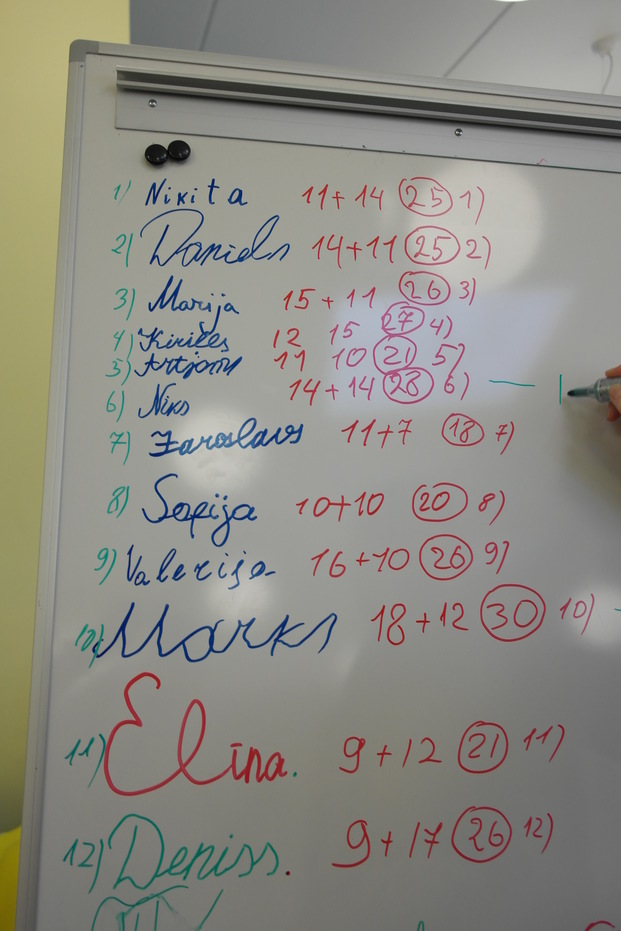 1) Nikita 11+14 25 1)
2) Daniels 14+11 25 2)
3) Marija 15+11 26 3)
4) Kirills 12 15 27 4)
5) Artjoms 11 10 21 5)
6) Niks 14+14 28 6) —
7) Jaroslavs 11+7 18 7)
8) Sofija 10+10 20 8)
9) Valerija 16+10 26 9)
10) Marks 18+12 30 10)
11) Elīna. 9+12 21 11)
12) Deniss. 9+17 26 12)